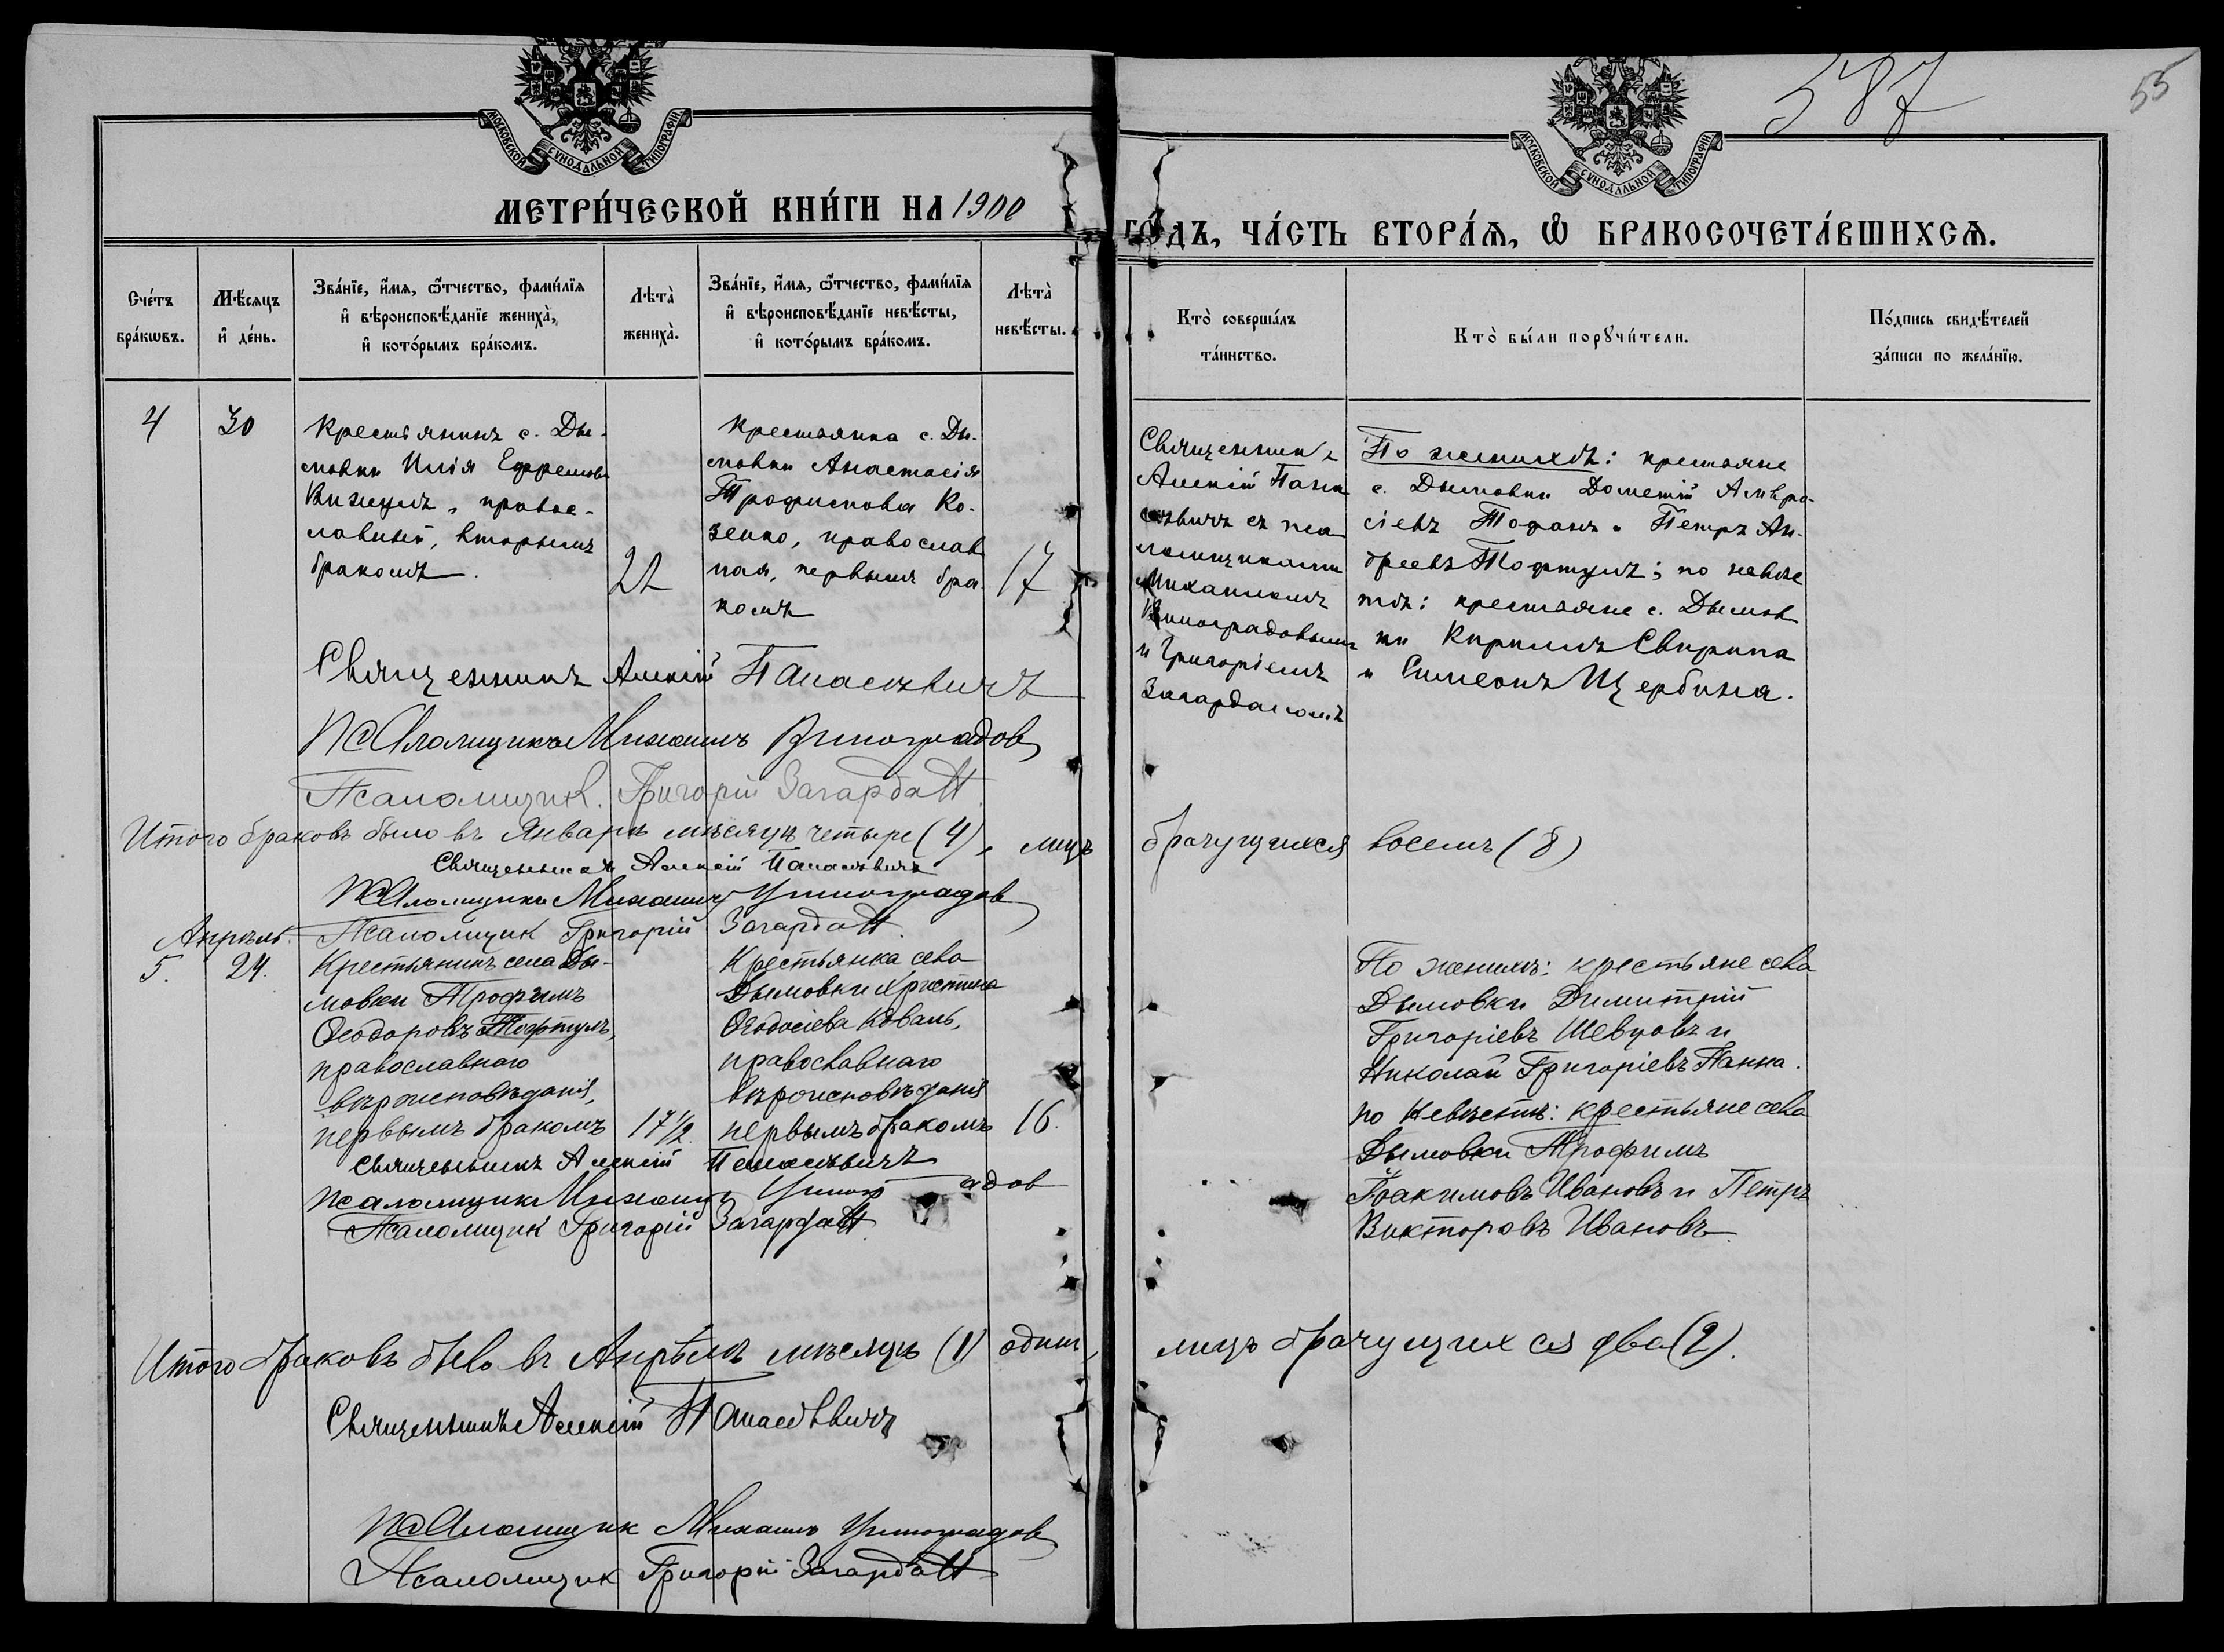 587
55
МОСКОВСКОЙ СУНОДАЛЬНОЙ ТИПОГРАФІИ
МОСКОВСКОЙ СУНОДАЛЬНОЙ ТИПОГРАФІИ
МЕТРИ́ЧЕСКОЙ КНИ́ГИ НА 1900
ГО́ДЪ, ЧА́СТЬ ВТОРА́Я, Ѡ БРАКОСОЧЕТА́ВШИХСЯ.
Сче́тъ
бра́кωвъ.
Мѣ́сяцъ
и҆ де́нь.
Зва́нїе, и҆́мя, ѻ҆́тчество, фами́лїя
и҆ вѣроисповѣ́данїе жениха̀,
и҆ кото́рымъ бра́комъ.
Лѣ́та̀
жениха̀.
Зва́нїе, и҆́мя, ѻ҆́тчество, фами́лїя
и҆ вѣроисповѣ́данїе невѣ́сты,
и҆ кото́рымъ бра́комъ.
Лѣ́та̀
невѣ́сты.
Кто̀ соверша́лъ
та́инство.
Кто̀ бы́ли порꙋчи́тели.
По́дпись свидѣ́телей
за́писи по жела́нїю.
4
30
Крестьянинъ с. Ды-
мовки Илія Ефремовъ
православный, вторымъ
бракомъ.
22
Крестьянка с. Ды-
мовки Анастасія
Трофимова Ко-
зенко, православ
ная, первымъ бра
комъ
17
Священникъ
Алексій Пана
сѣвичъ съ пса
ломщиками
Михаиломъ
Виноградовымъ
и Григоріемъ
Загардаломъ
По женихѣ: крестьяне
с. Дымовки Дометій Амвро-
сіевъ Тофанъ и Петръ Ан-
дреевъ Тофтулъ; по невѣс
тѣ: крестьяне с. Дымов
ки Кириллъ Свирипа
и Симеонъ Щербина.
Священникъ Алексій Панасѣвичъ
Псаломщикъ Михаилъ Виноградовъ
Псаломщикъ. Григорій Загардалъ
Итого браковъ было въ Январѣ мѣсяцѣ четыре (4), лицъ брачущихся восемь (8)
Священникъ Алексій Панасѣвичъ
Псаломщикъ Михаилъ Виноградов
Псаломщик Григорій Загардалъ
Апрѣль.
5. 24.
Крестьянинъ села Ды-
мовки Трофимъ
Ѳеодоровъ Тофтулъ,
православнаго
вѣроисповѣданія,
первымъ бракомъ
17 1/2.
Крестьянка села
Дымовки Христина
Ѳеодосіева Коваль,
православнаго
вѣроисповѣданія
первымъ бракомъ
16.
По женихѣ: крестьяне села
Дымовки Димитрій
Григоріевъ Шевцовъ и
Николай Григоріевъ Панна.
по невѣстѣ: крестьяне села
Дымовки Трофимъ
Іоакимовъ Ивановъ и Петръ
Викторовъ Ивановъ.
Священникъ Алексій Панасѣвичъ
Псаломщикъ Михаилъ Виноградов
Псаломщик Григорій Загардалъ
Итого браковъ было въ Апрѣлѣ мѣсяцѣ (1) одинъ, лицъ брачущихся два (2).
Священникъ Алексій Панасѣвичъ
Псаломщик Михаилъ Виноградов
Псаломщик Григорій Загардалъ